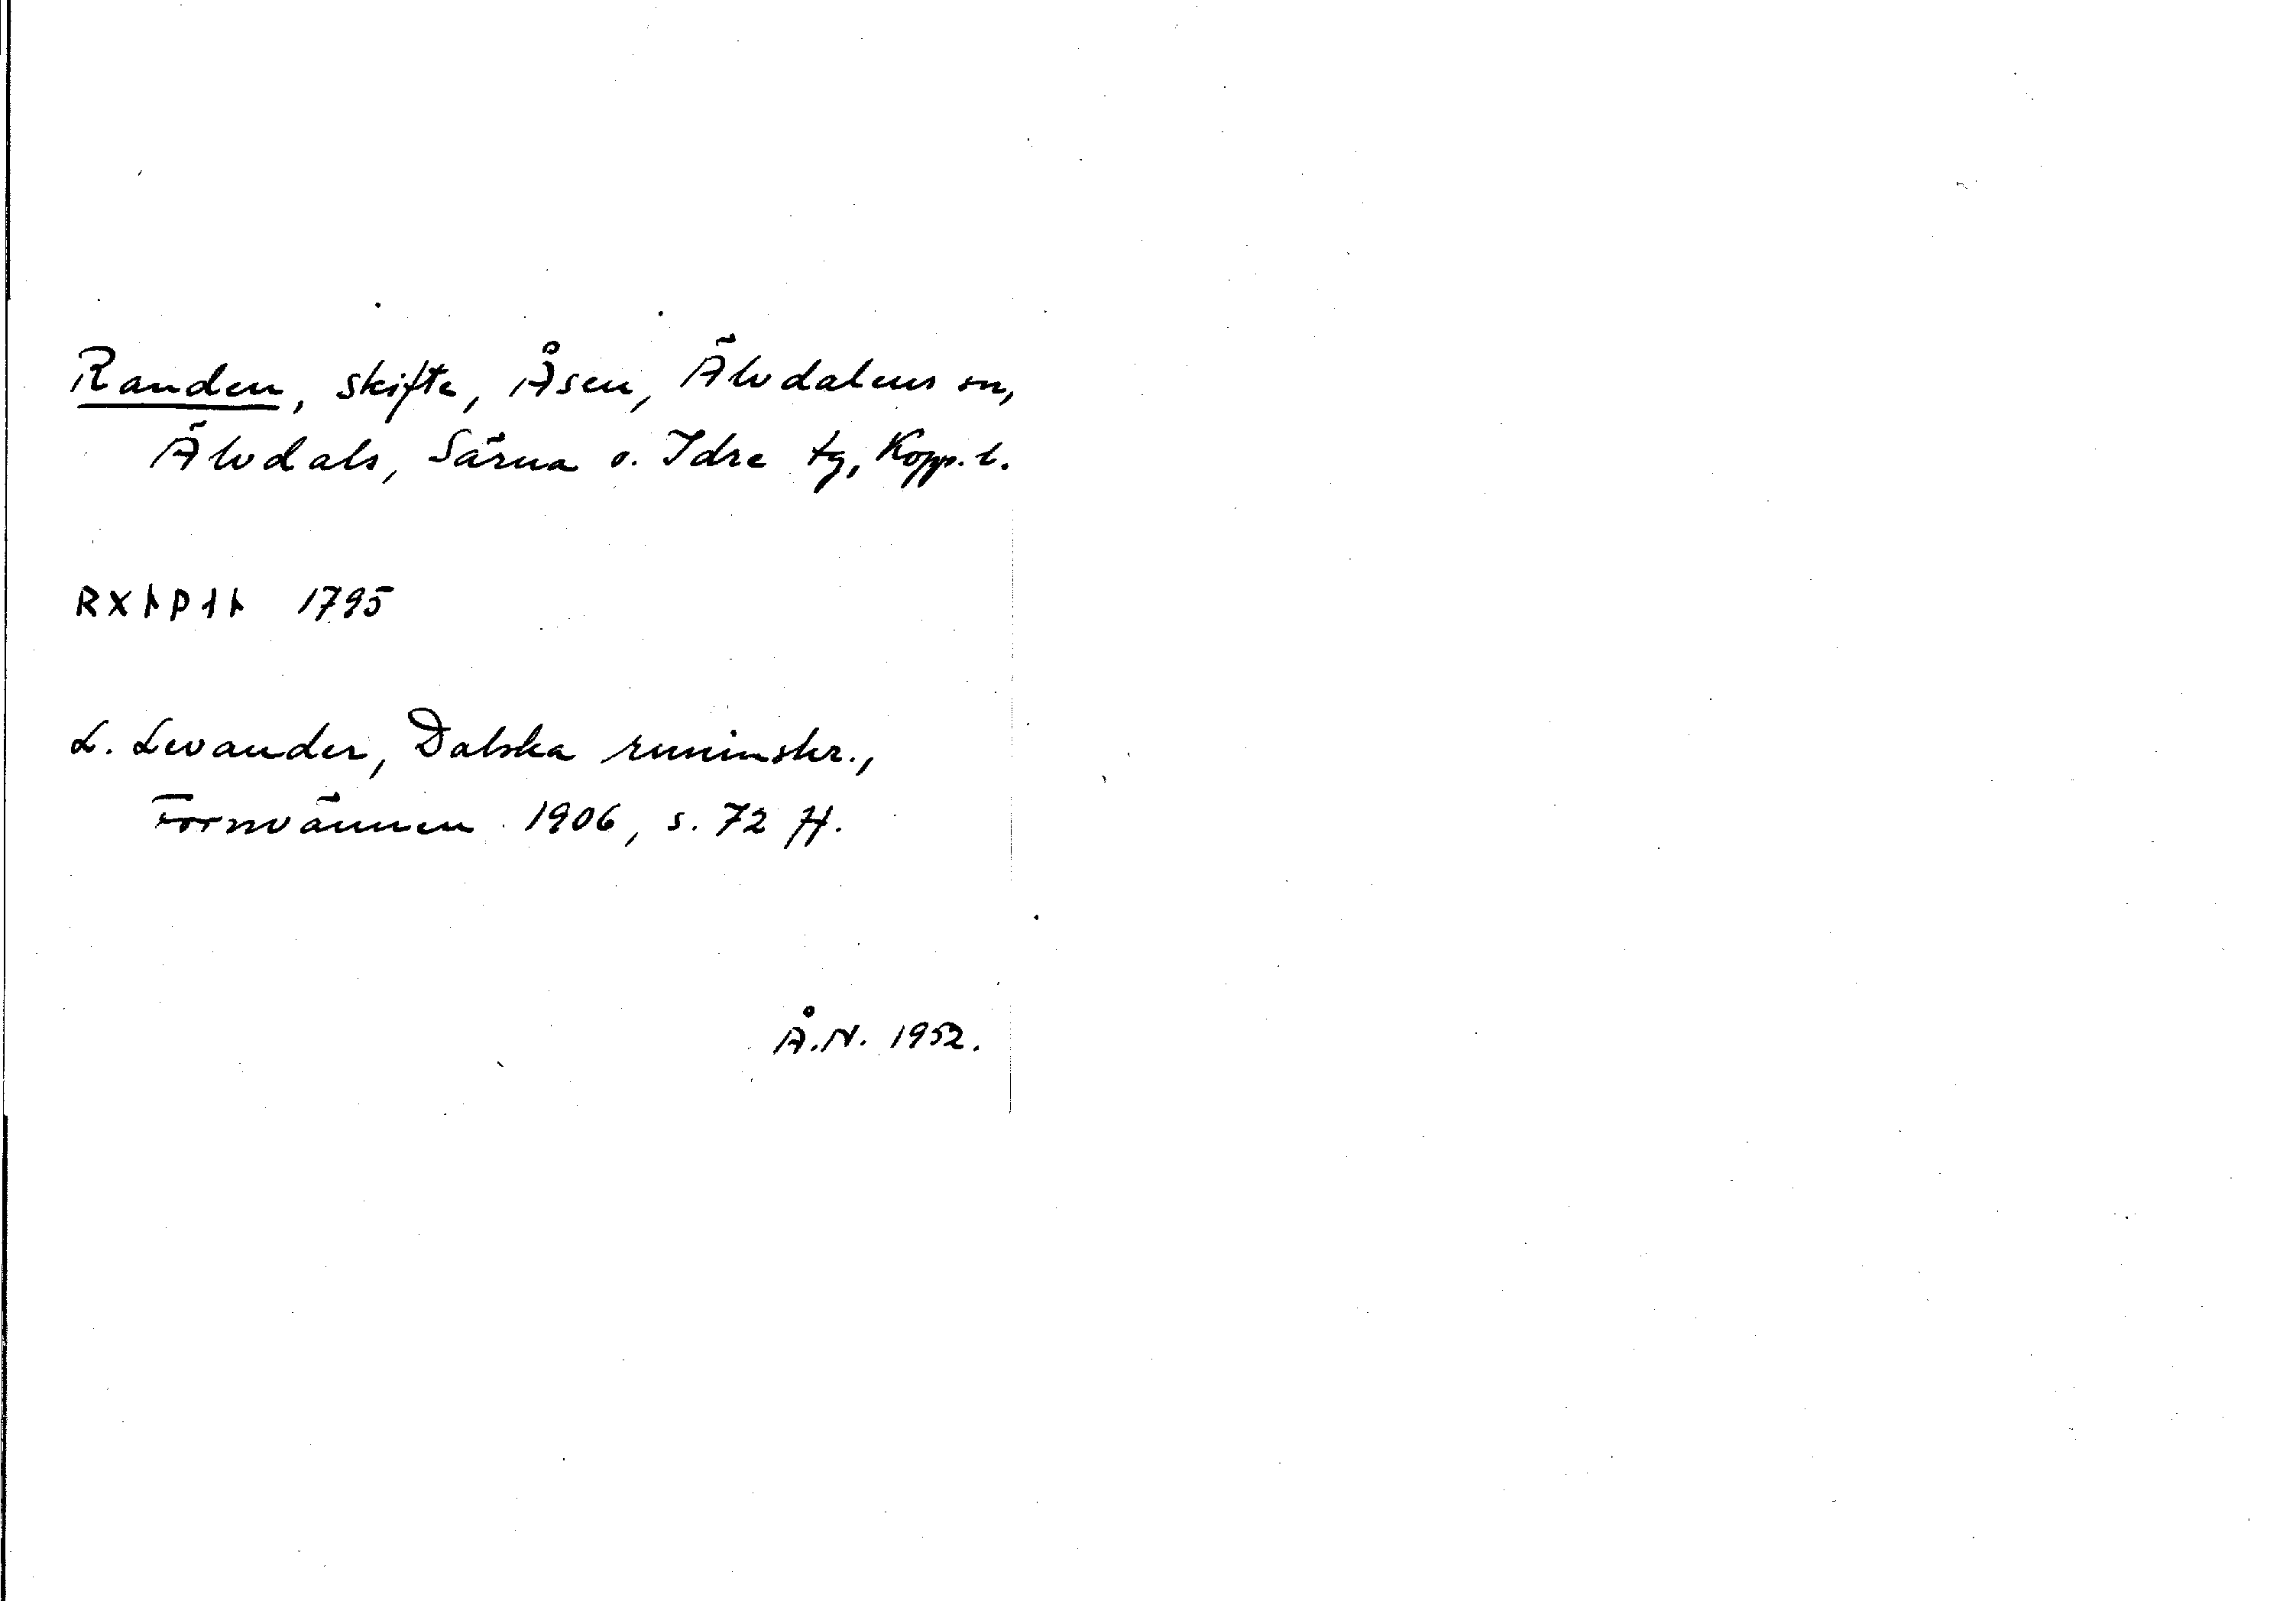 Randen, skifte, Åsen, Älvdalens sn,
Älvdals, Särna o. Idre tg, Kopp. l.
RXᚿPᛆᚿ 1795
L. Levander, Dalska runinskr.,
Fornvännen 1906, s. 72 ff.
Å.N. 1952.